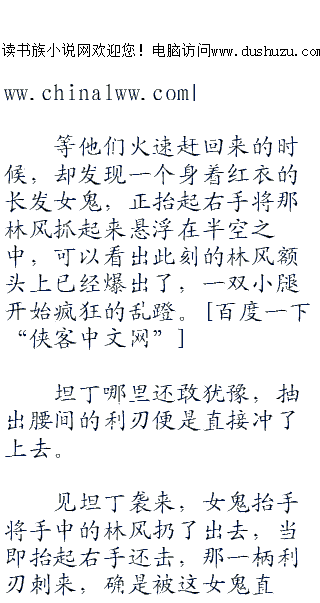 读书族小说网欢迎您！电脑访问www.dushuzu.com
ww.chinalww.com|
等他们火速赶回来的时
候，却发现一个身着红衣的
长发女鬼，正抬起右手将那
林风抓起来悬浮在半空之
中，可以看出此刻的林风额
头上已经爆出了，一双小腿
开始疯狂的乱蹬。[百度一下
“侠客中文网”]
坦丁哪里还敢犹豫，抽
出腰间的利刃便是直接冲了
上去。
见坦丁袭来，女鬼抬手
将手中的林风扔了出去，当
即抬起右手还击，那一柄利
刃刺来，确是被这女鬼直